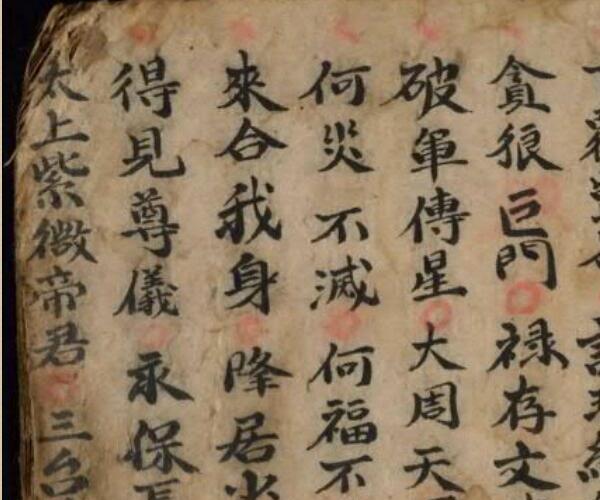 貪狼巨門禄存文
破軍傳星大周天
何災不滅何福不
來合我身降居
得見尊儀永保
太上紫微帝君三台